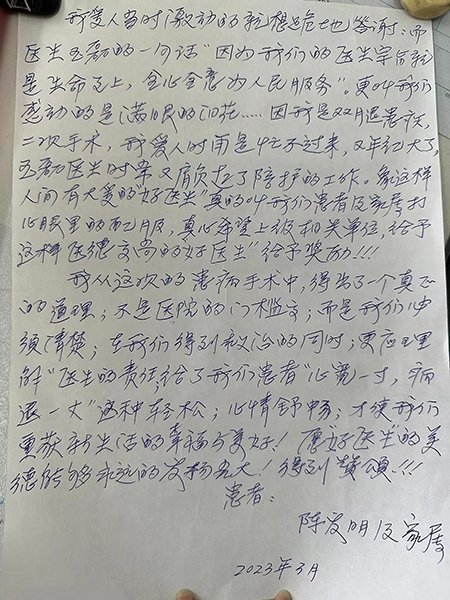 我爱人当时激动的就想跪地答谢；而
医生孟磊的一句话“因为我们的医生宗旨就
是生命至上，全心全意为人民服务”。更叫我们
感动的是满眼的泪花……因我是双腿患疾，
二次手术，我爱人时而是忙不过来，又年纪大了，
孟磊医生时常又肩负起了陪护的工作。象这样
人间有大爱的“好医生”真的叫我们患者及家属打
心眼里的配服，真心希望上级相关单位，给予
这种医德高尚的“好医生”给予奖励!!!
我从这次的患病手术中，得出了一个真正
的道理；不是医院的门槛高；而是我们必
须清楚；在我们得到救治的同时；更应理
解“医生的责任给了我们患者“心宽一寸，病
退一丈”这种轻松；心情舒畅；才使我们
重获新生活的幸福与美好！愿“好医生”的美
德能够永远的发扬光大！得到赞颂!!!
患者：
陈友明及家属
2023年3月